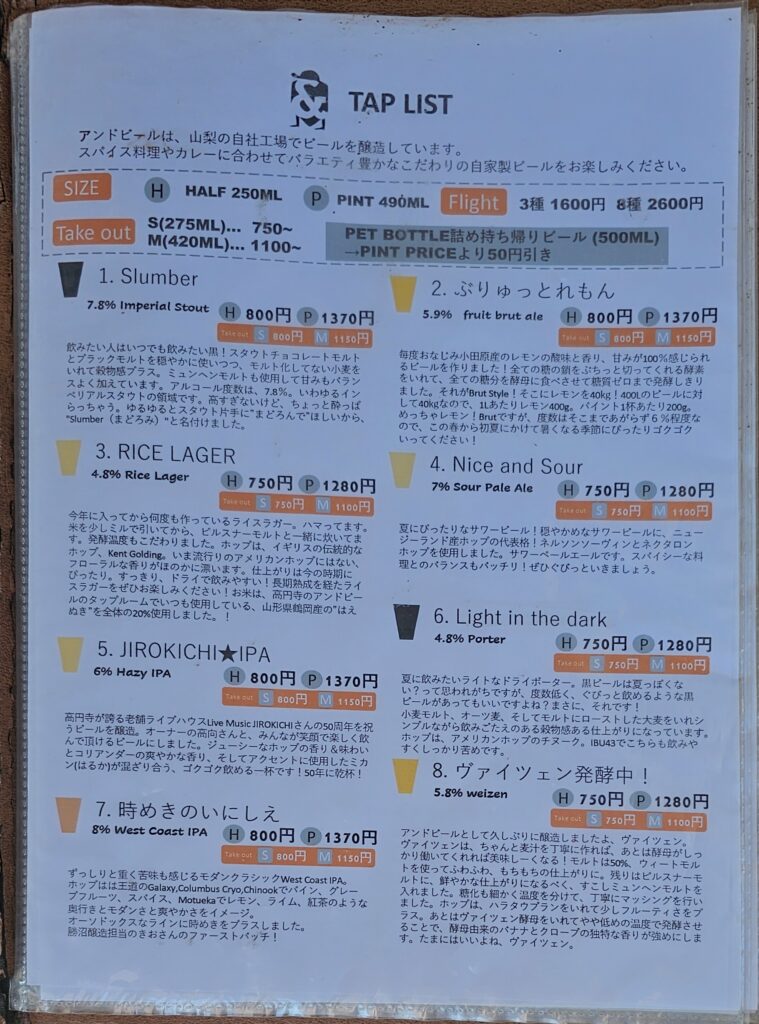 TAP LIST
アンドビールは、山梨の自社工場でビールを醸造しています。
スパイス料理やカレーに合わせてバラエティ豊かなこだわりの自家製ビールをお楽しみください。
SIZE H HALF 250ML P PINT 490ML Flight 3種 1600円 8種 2600円
Take out S(275ML)... 750~
M(420ML)... 1100~
PET BOTTLE詰め持ち帰りビール (500ML)
→PINT PRICEより50円引き
1. Slumber
7.8% Imperial Stout H 800円 P 1370円
Take out S 800円 M 1150円
飲みたい人はいつでも飲みたい黒！スタウトチョコレートモルト
とブラックモルトを穏やかに使いつつ、モルト化してない小麦を
いれて穀物感プラス。ミュンヘンモルトも使用して甘みもバラン
スよく加えています。アルコール度数は、7.8%。いわゆるイン
ペリアルスタウトの領域です。高すぎないけど、ちょっと酔っぱ
らっちゃう。ゆるゆるとスタウト片手に"まどろんで"ほしいから、
"Slumber（まどろみ）"と名付けました。
2. ぶりゅっとれもん
5.9% fruit brut ale H 800円 P 1370円
Take out S 800円 M 1150円
毎度おなじみ小田原産のレモンの酸味と香り、甘みが100%感じられ
るビールを作りました！全ての糖の鎖をぶちっと切ってくれる酵素
をいれて、全ての糖分を酵母に食べさせて糖質ゼロまで発酵しきり
ました。それがBrut Style！そこにレモンを40kg！400Lのビールに対
して40kgなので、1Lあたりレモン400g。パイント1杯あたり200g。
めっちゃレモン！Brutですが、度数はそこまであがらず6%程度な
ので、この春から初夏にかけて暑くなる季節にぴったりゴクゴク
いってください！
3. RICE LAGER
4.8% Rice Lager H 750円 P 1280円
Take out S 750円 M 1100円
今年に入ってから何度も作っているライスラガー。ハマってます。
米を少しミルで引いてから、ピルスナーモルトと一緒に炊いてま
す。発酵温度もこだわりました。ホップは、イギリスの伝統的な
ホップ、Kent Golding。いま流行りのアメリカンホップにはない、
フローラルな香りがほのかに漂います。仕上がりは今の時期に
ぴったり。すっきり、ドライで飲みやすい！長期熟成を経たライ
スラガーをぜひお楽しみください！お米は、高円寺のアンドビー
ルのタップルームでいつも使用している、山形県鶴岡産の"はえ
ぬき"を全体の20%使用しました。！
4. Nice and Sour
7% Sour Pale Ale H 750円 P 1280円
Take out S 750円 M 1100円
夏にぴったりなサワービール！穏やかめなサワービールに、ニュー
ジーランド産ホップの代表格！ネルソンソーヴィンとネクタロン
ホップを使用しました。サワーペールエールです。スパイシーな料
理とのバランスもバッチリ！ぜひぐびっといきましょう。
5. JIROKICHI★IPA
6% Hazy IPA H 800円 P 1370円
Take out S 800円 M 1150円
高円寺が誇る老舗ライブハウスLive Music JIROKICHIさんの50周年を祝
うビールを醸造。オーナーの高向さんと、みんなが笑顔で楽しく飲
んで頂けるビールにしました。ジューシーなホップの香り＆味わい
とコリアンダーの爽やかな香り、そしてアクセントに使用したミカ
ン(はるか)が混ざり合う、ゴクゴク飲める一杯です！50年に乾杯！
6. Light in the dark
4.8% Porter H 750円 P 1280円
Take out S 750円 M 1100円
夏に飲みたいライトなドライポーター。黒ビールは夏っぽくな
い？って思われがちですが、度数低く、ぐびっと飲めるような黒
ビールがあってもいいですよね？まさに、それです！
小麦モルト、オーツ麦、そしてモルトにローストした大麦をいれシ
ンプルながら飲みごたえのある穀物感ある仕上がりになっています。
ホップは、アメリカンホップのチヌーク。IBU43でこちらも飲みや
すくしっかり苦めです。
7. 時めきのいにしえ
8% West Coast IPA H 800円 P 1370円
Take out S 800円 M 1150円
ずっしりと重く苦味も感じるモダンクラシックWest Coast IPA。
ホップはは王道のGalaxy,Columbus Cryo,Chinookでパイン、グレー
プフルーツ、スパイス、Motuekaでレモン、ライム、紅茶のような
奥行きとモダンさと爽やかさをイメージ。
オーソドックスなラインに時めきをプラスしました。
勝沼醸造担当のきおさんのファーストバッチ！
8. ヴァイツェン発酵中！
5.8% weizen H 750円 P 1280円
Take out S 750円 M 1100円
アンドビールとして久しぶりに醸造しましたよ、ヴァイツェン。
ヴァイツェンは、ちゃんと麦汁を丁寧に作れば、あとは酵母がしっ
かり働いてくれれば美味しーくなる！モルトは50%、ウィートモル
トを使ってふわふわ、もちもちの仕上がりに。残りはピルスナーモ
ルトに、鮮やかな仕上がりになるべく、すこしミュンヘンモルトを
入れました。糖化も細かく温度を分けて、丁寧にマッシングを行い
ました。ホップは、ハラタウブランをいれて少しフルーティさをプ
ラス。あとはヴァイツェン酵母をいれてやや低めの温度で発酵させ
ることで、酵母由来のバナナとクローブの独特な香りが強めにしま
す。たまにはいいよね、ヴァイツェン。